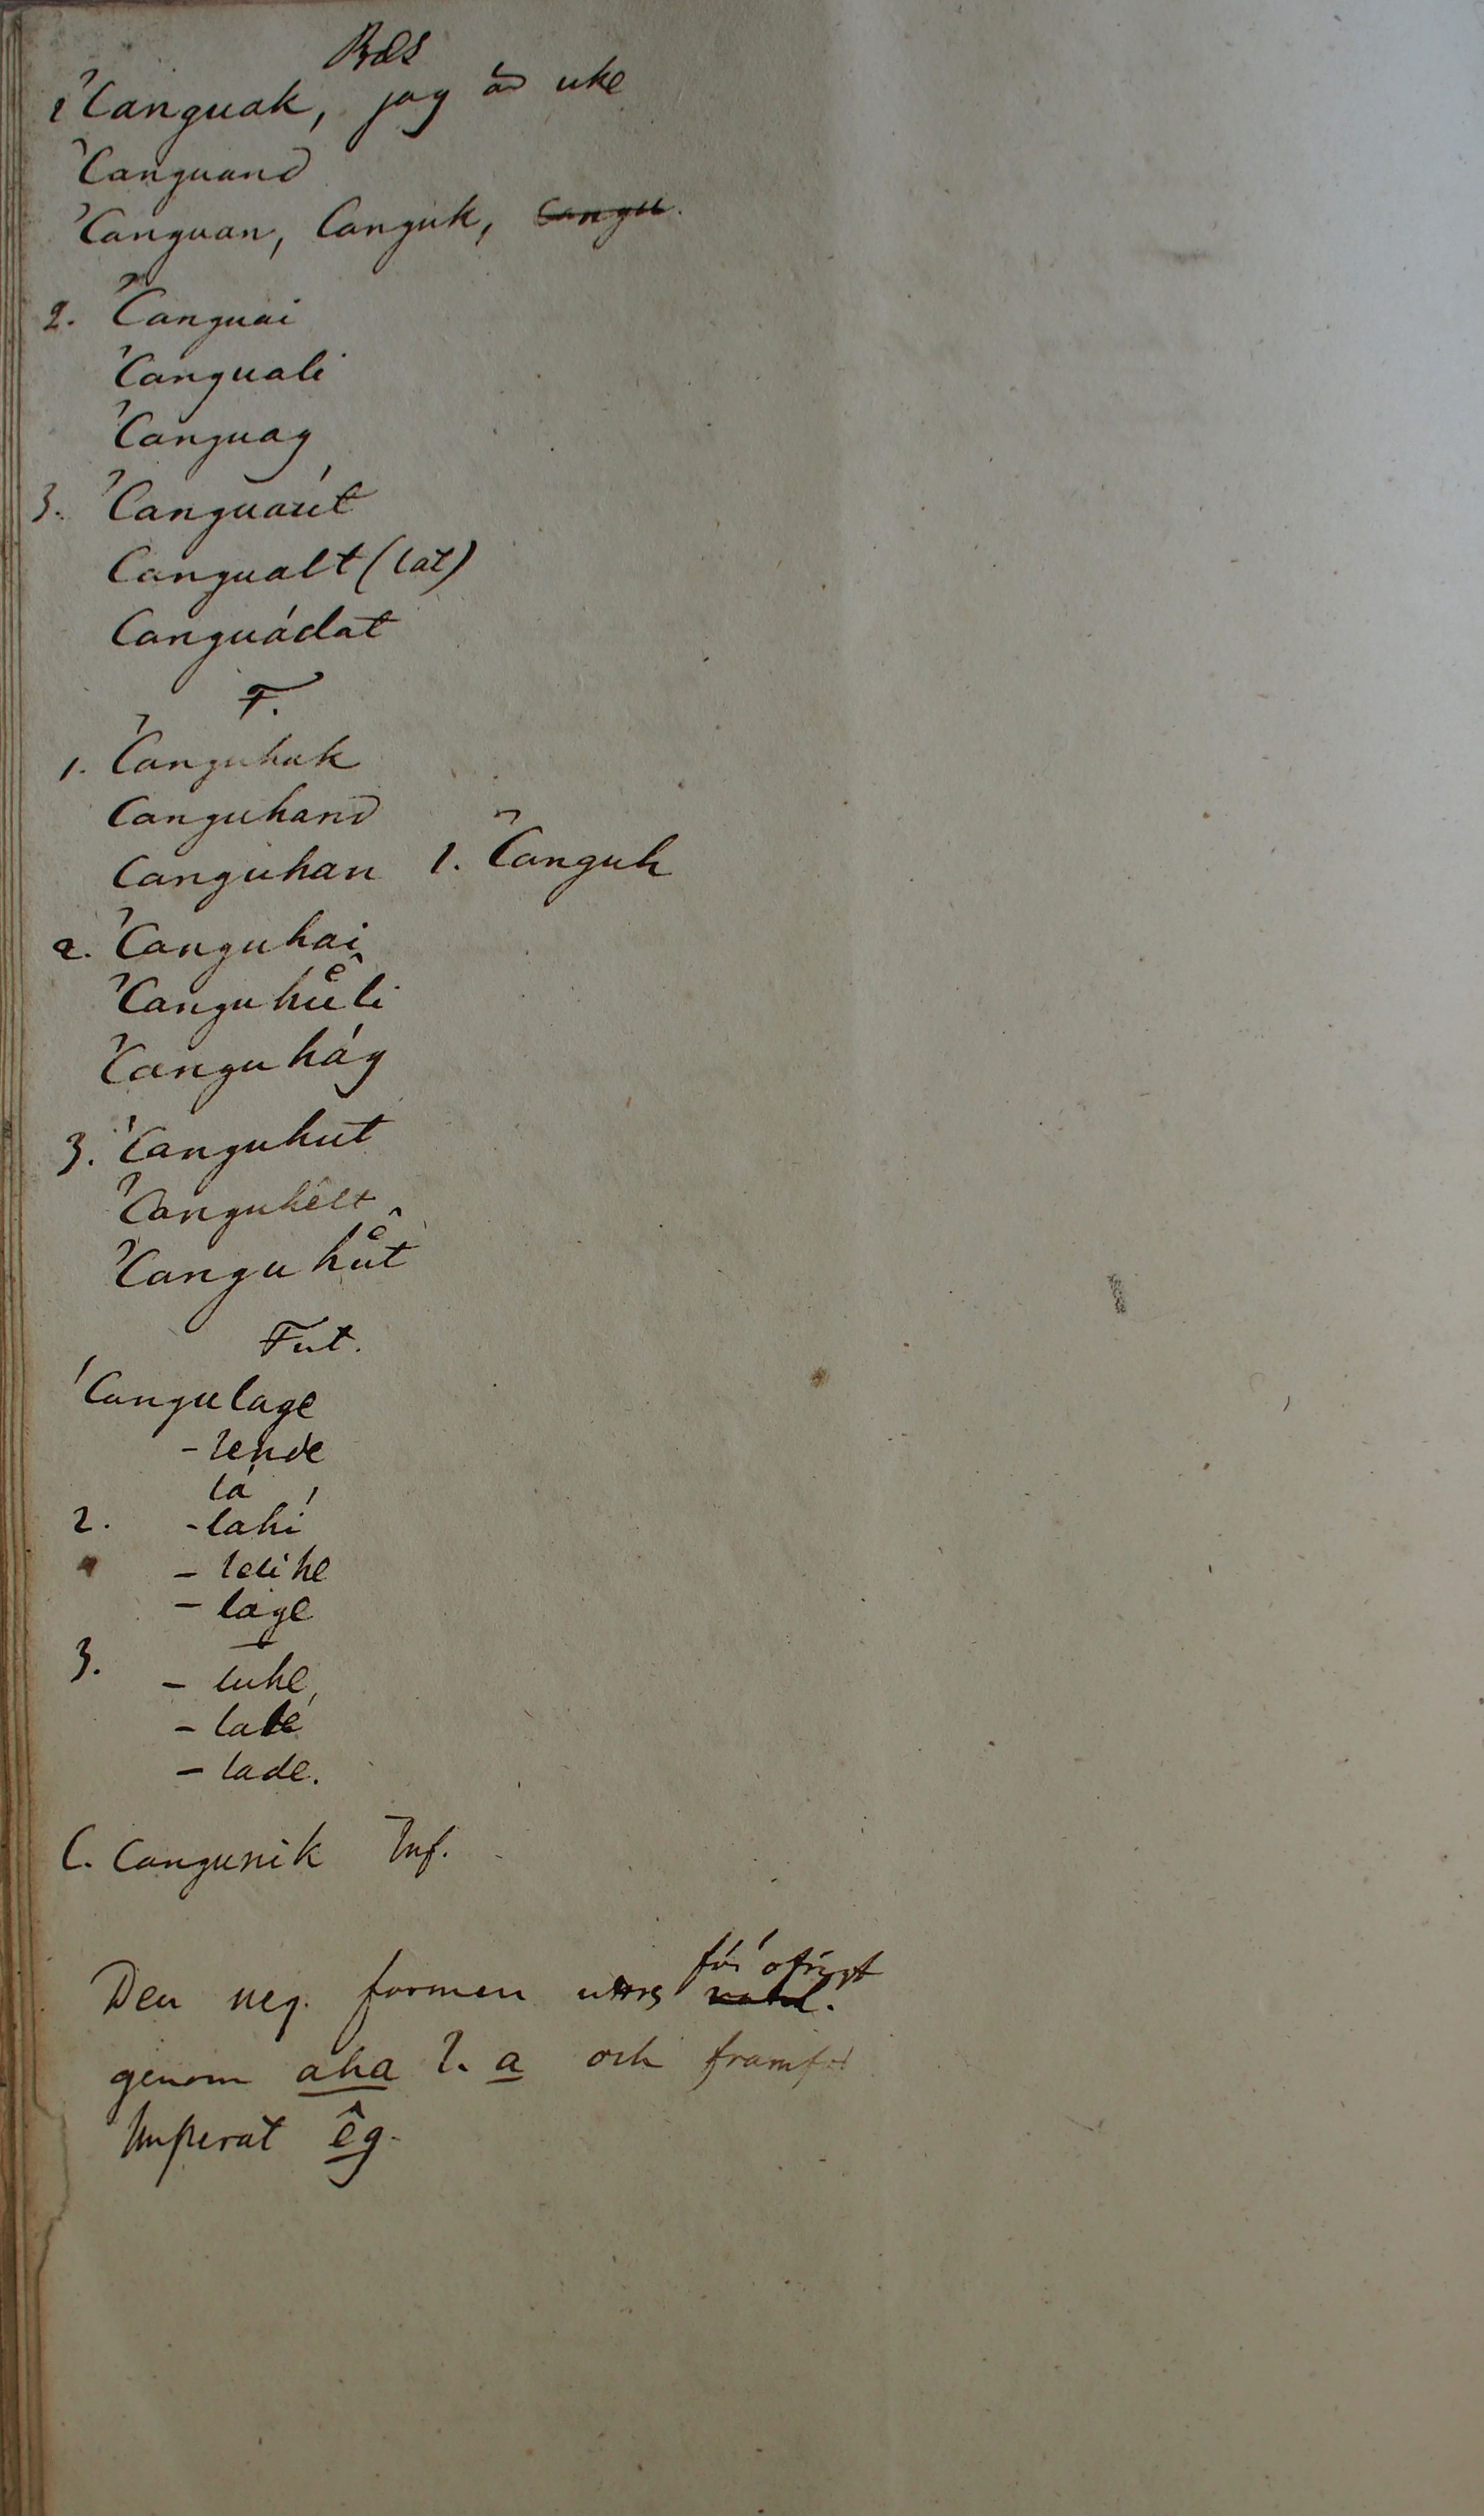 Præs
1 ʼCanguak, jag är uke
ʼCanguand
ʼCanguan, Canguk, Cangu.
2. ʼCanguai
ʼCanguali
ʼCanguag
3. ʼCanguaút
Cangualt (lat)
Canguádat
F.
1. ʼCanguhak
Canguhand
Canguhan l. ʼCanguh
2. ʼCanguhai
ʼCanguhůli
ʼCanguhág
3. ʼCanguhut
ʼCanguhelt
ʼCanguhůt
Fut.
ʼCangulage
- lende
lá
2. - lahi
- lelihe
- lage
3. - luhe
- late
- lade.
C. Cangunik Inf.
Den neg. formen uttrs för öfrigt
genom aha l. a och framför
Imperat êg.